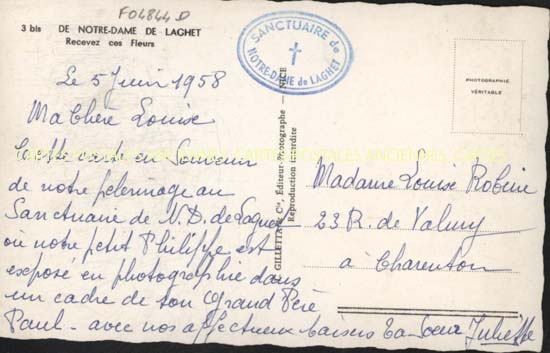 F04844D
3 bis DE NOTRE-DAME DE LAGHET
Recevez ces Fleurs
SANCTUAIRE de
NOTRE-DAME de LAGHET
PHOTOGRAPHIE
VÉRITABLE
Le 5 Juin 1958
Ma Chère Louise
Cette carte en Souvenir
de notre pélerinage au
Sanctuaire de N.D. de Laguet
où notre petit Philippe est
exposé en photographie dans
un cadre de ton Grand Père
Paul - avec nos affectueux baisers ta Soeur Juliette
GILLETTA & Cie, Éditeur-Photographe - NICE
Reproduction interdite
Madame Louise Robine
23 R. de Valmy
à Charenton